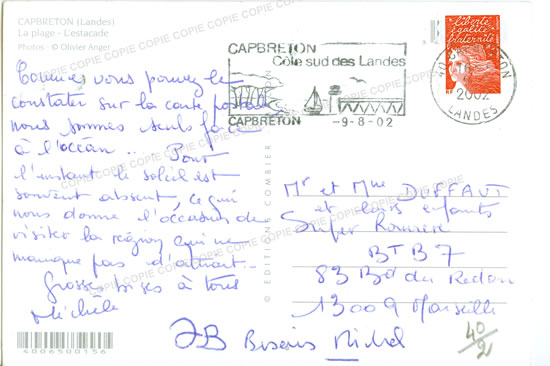 CAPBRETON (Landes)
La plage - L'estacade
Photos - © Olivier Anger
Comme vous pouvez le
constater sur la carte postale
nous sommes seuls face
à l'océan.. Pour
l'instant le soleil est
souvent absent, ce qui
nous donne l'occasion de
visiter la région qui ne
manque pas d'attrait...
Grosses bises à tous
Michèle
JB Bisous Michel
4006500156
© EDITIONS COMBIER
CAPBRETON
Côte sud des Landes
CAPBRETON
-9-8-02
liberté
égalité
fraternité
RF
2002
LANDES
Mr et Mme DUFFAUT
et leurs enfants
Super Rouvière
BT B7
83 Bd du Redon
13009 Marseille
40/2
COPIE COPIE COPIE COPIE COPIE COPIE